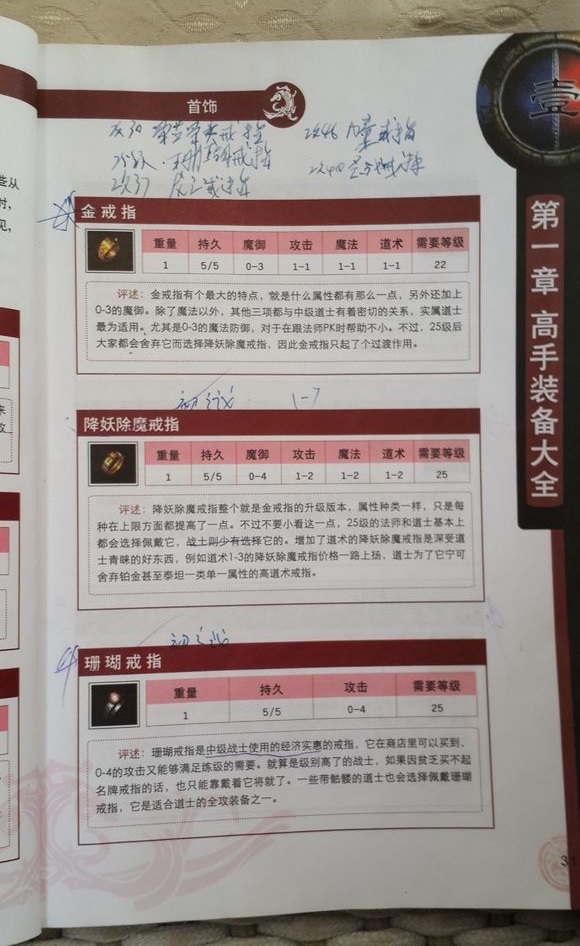 首饰
壹
第一章 高手装备大全
金戒指
重量 持久 魔御 攻击 魔法 道术 需要等级
1 5/5 0-3 1-1 1-1 1-1 22
评述：金戒指有个最大的特点，就是什么属性都有那么一点，另外还加上
0-3的魔御。除了魔法以外，其他三项都与中级道士有着密切的关系，实属道士
最为适用。尤其是0-3的魔法防御，对于在跟法师PK时帮助不小。不过，25级后
大家都会舍弃它而选择降妖除魔戒指，因此金戒指只起了个过渡作用。
1-7
降妖除魔戒指
重量 持久 魔御 攻击 魔法 道术 需要等级
1 5/5 0-4 1-2 1-2 1-2 25
评述：降妖除魔戒指整个就是金戒指的升级版本，属性种类一样，只是每
种在上限方面都提高了一点。不过不要小看这一点，25级的法师和道士基本上
都会选择佩戴它，战士则少有选择它的。增加了道术的降妖除魔戒指是深受道
士青睐的好东西，例如道术1-3的降妖除魔戒指价格一路上扬，道士为了它宁可
舍弃铂金甚至泰坦一类单一属性的高道术戒指。
珊瑚戒指
重量 持久 攻击 需要等级
1 5/5 0-4 25
评述：珊瑚戒指是中级战士使用的经济实惠的戒指，它在商店里可以买到，
0-4的攻击又能够满足练级的需要。就算是级别高了的战士，如果因贫乏买不起
名牌戒指的话，也只能靠戴着它将就了。一些带骷髅的道士也会选择佩戴珊瑚
戒指，它是适合道士的全攻装备之一。